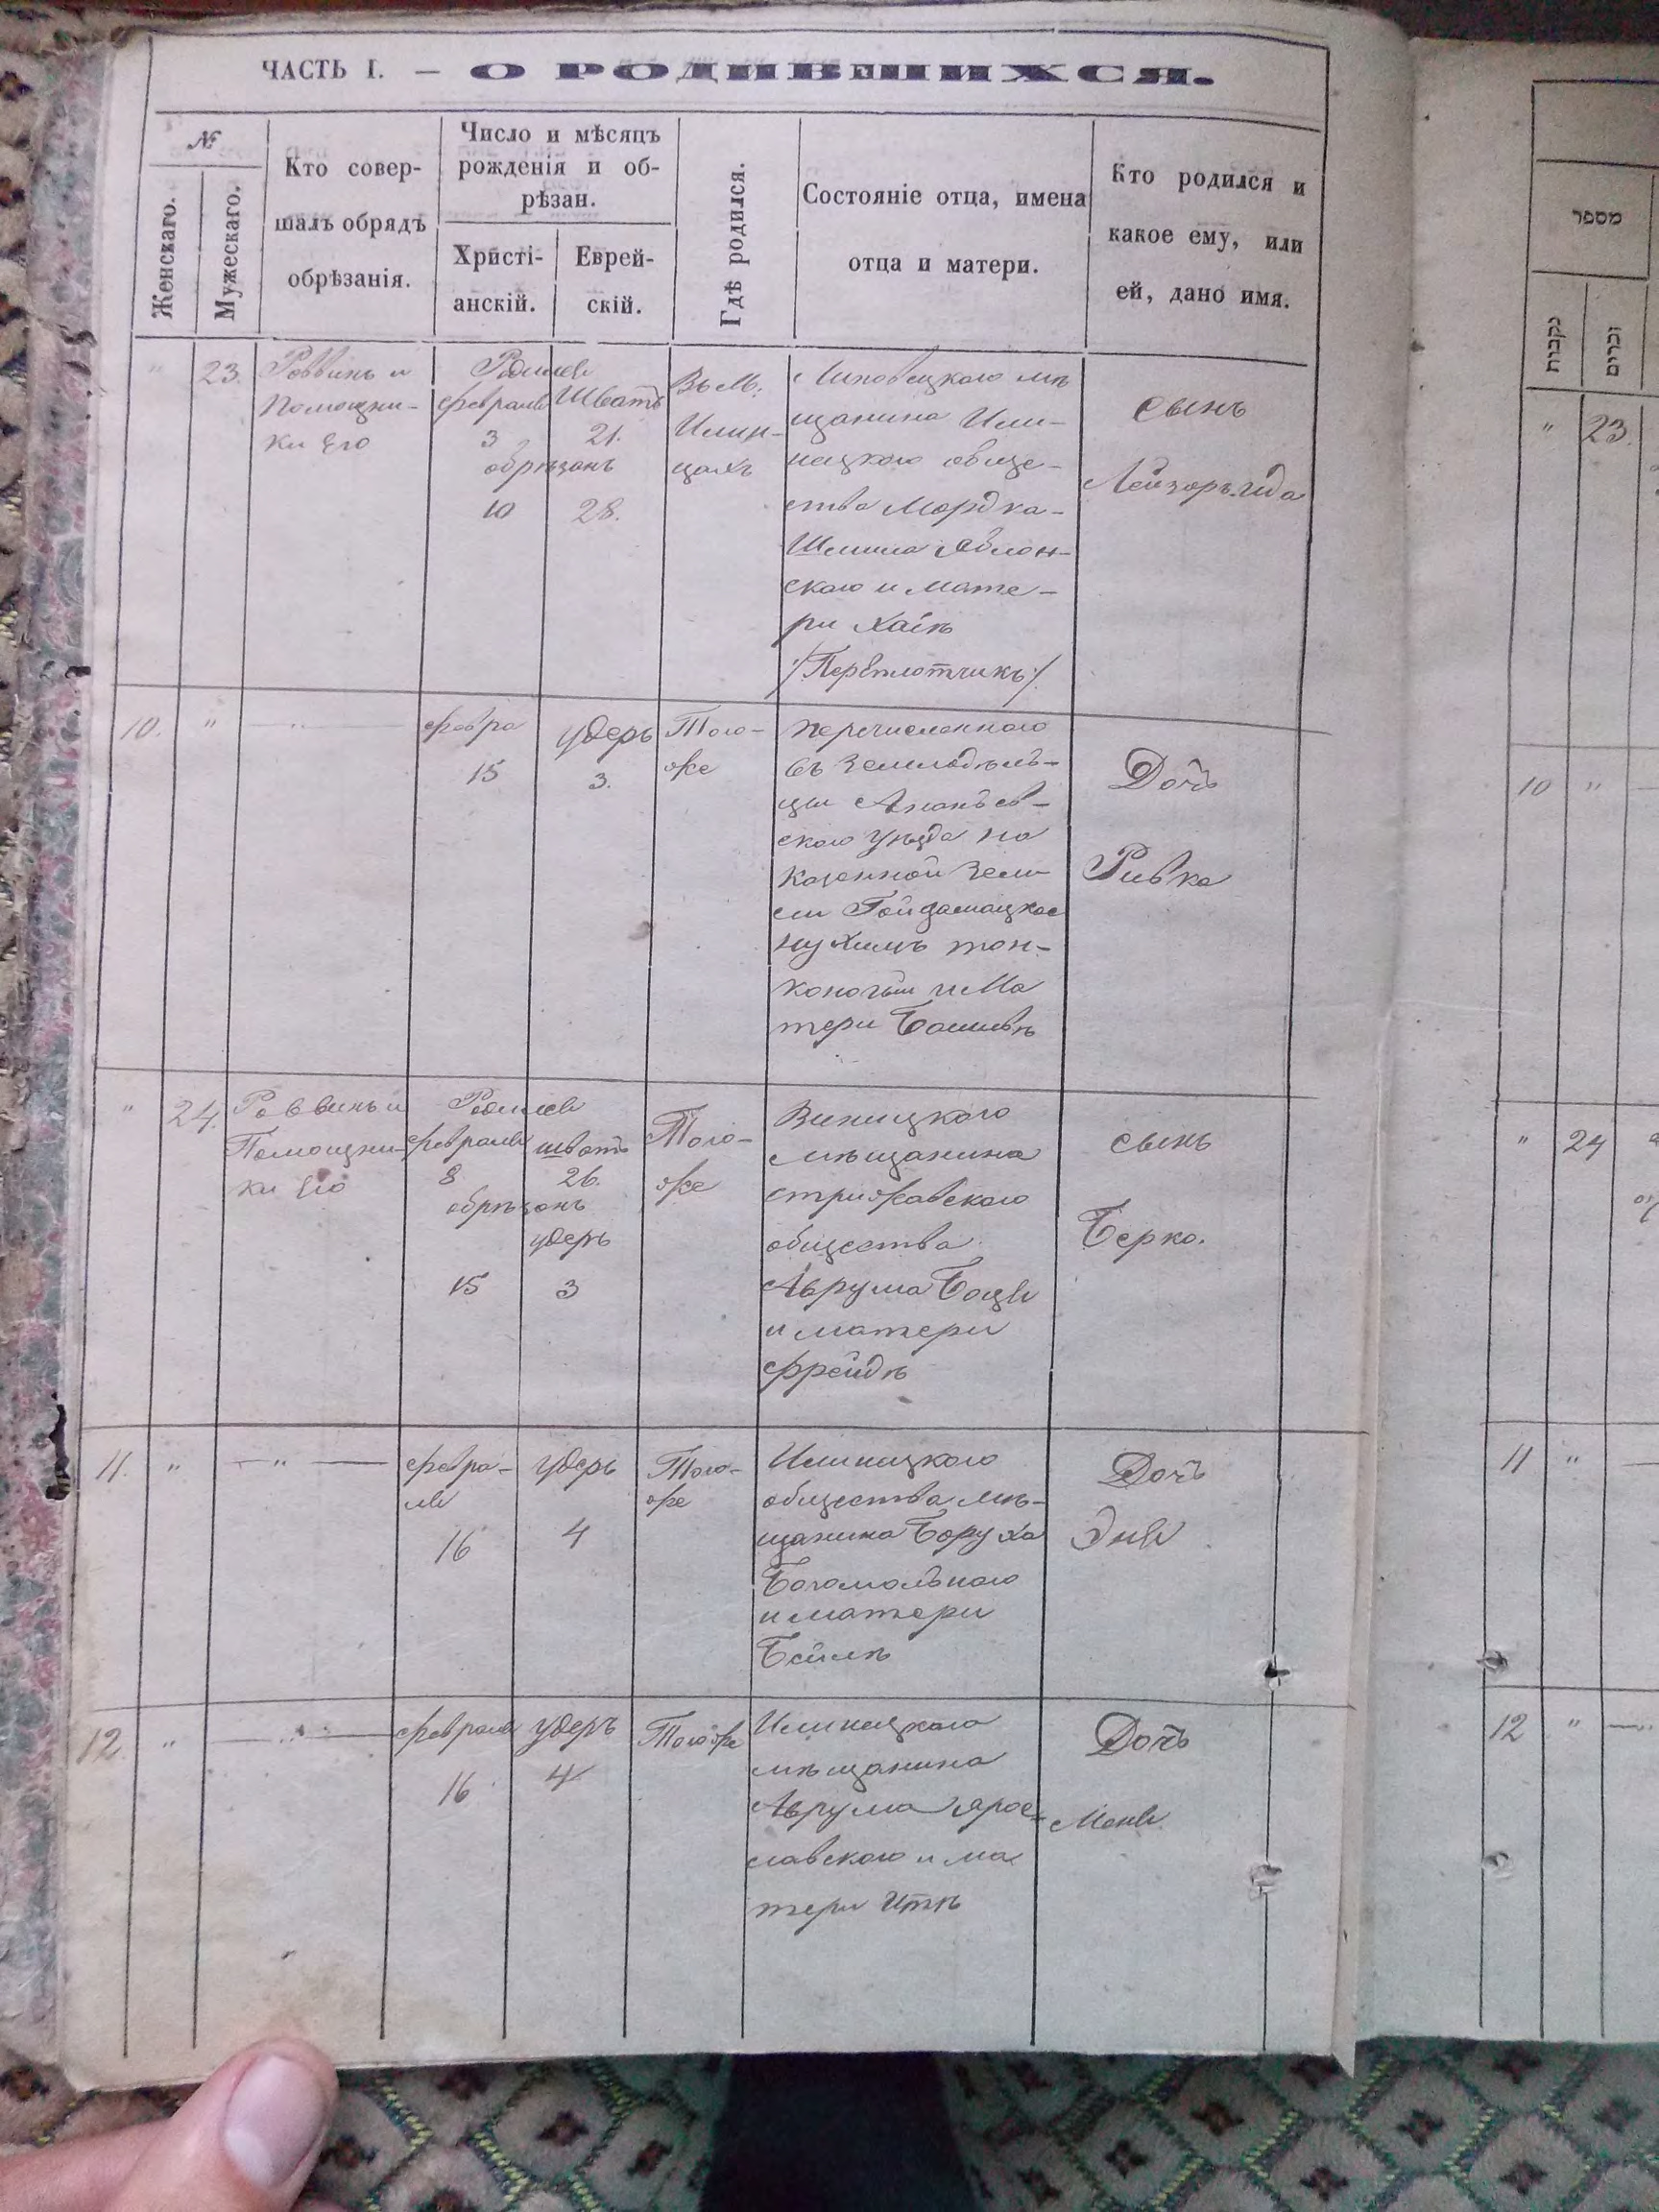 ЧАСТЬ I. — О РОДИВШИХСЯ.
№
Женскаго.
Мужескаго.
Кто совер-
шалъ обрядъ
обрѣзанія.
Число и мѣсяцъ
рожденія и об-
рѣзан.
Христі-
анскій.
Еврей-
скій.
Гдѣ родился.
Состояніе отца, имена
отца и матери.
Кто родился и
какое ему, или
ей, дано имя.
"
23.
Раввинъ и
Помощни-
ки Его
Родился
февраля Шватъ
3 21.
обрѣзанъ
10 28.
Въ М.
Илин-
цахъ
Липовецкаго мѣ
щанина Или-
нецкаго обще-
ства Мордка-
Шмила Яблон-
скаго и мате-
ри Хаи
/:Переплотчикъ:/
сынъ
Лейзоръ
10.
"
февра
15
удеръ
3.
Того-
же
перечисленнаго
въ Земледѣль-
цы Ананьев-
скаго Уѣзда на
казенной Земли
Нухимъ тон-
коногій и Ма
тери
Дочь
Ривка
"
24.
Раввинъ и
Помощни-
ки Его
Родился
февраля шватъ
8 26.
обрѣзанъ
удеръ
15 3
Того-
же
Виницкаго
мѣщанина
стрижавскаго
общества
Аврума
и матери
фрейдѣ
сынъ
Берко.
11.
"
— " —
февра-
ля
16
удеръ
4
Того-
же
Илинецкаго
общества мѣ-
щанина Боруха
Богомольнаго
и матери
Бейлѣ
Дочь
Эня
12.
"
февраля
16
удеръ
4
Тогоже
Илинецкаго
мѣщанина
Аврума Ярос-
лавскаго и ма
тери Иткѣ
Дочь
מספר
נקבות
זכרים
"
23.
10
"
"
24
11
"
12
"